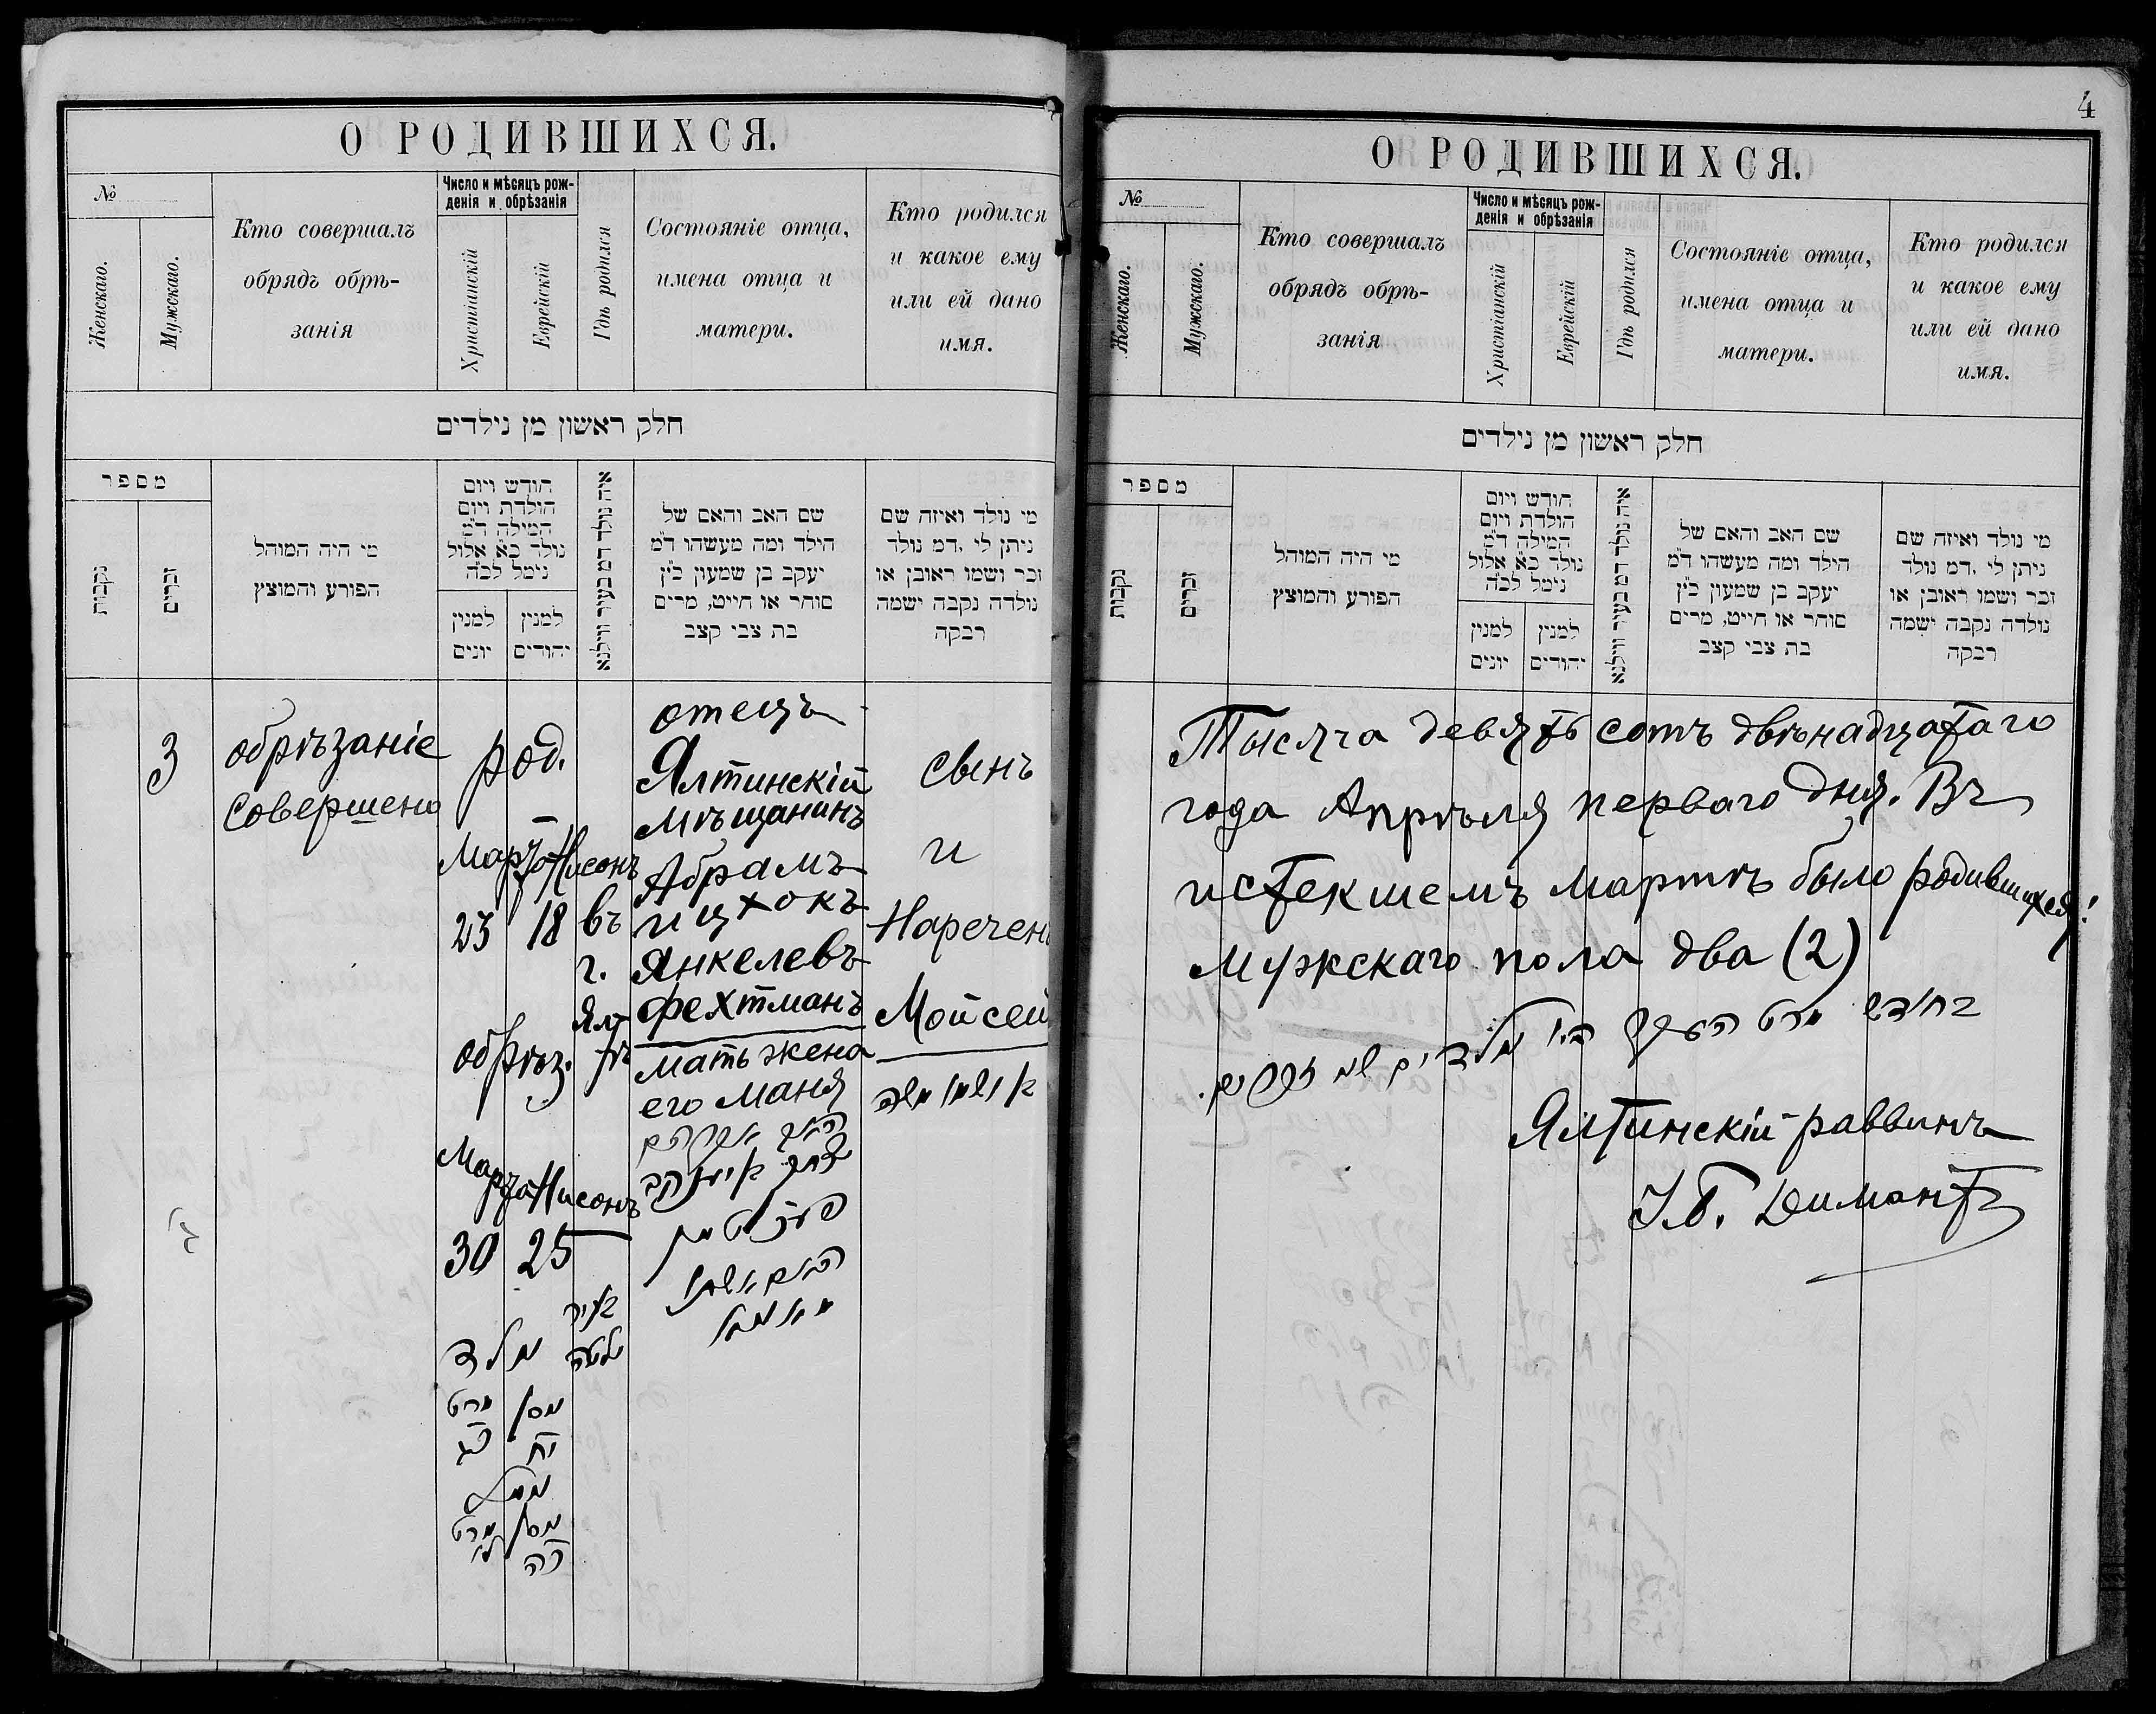 О РОДИВШИХСЯ.
№
Женскаго.
Мужскаго.
Кто совершалъ
обрядъ обрѣ-
занія
Число и мѣсяцъ рож-
денія и обрѣзанія
Христіанскій
Еврейскій
Гдѣ родился
Состояніе отца,
имена отца и
матери.
Кто родился
и какое ему
или ей дано
имя.
חלק ראשון מן נילדים
מספר
נקבות
זכרים
מי היה המוהל
הפורע והמוצץ
חודש ויום
הולדת ויום
המילה ד"מ
נולד כ"א אלול
נימל לכ"ה
למנין
יונים
למנין
יהודים
איה נולד דמ בעיר ווילנא
שם האב והאם של
הילד ומה מעשהו ד"מ
יעקב בן שמעון כ"ץ
סוחר או חייט, מרים
בת צבי קצב
מי נולד ואיזה שם
ניתן לי .דמ נולד
זכר ושמו ראובן או
נולדה נקבה ישמה
רבקה
3
обрѣзаніе
совершено
род.
Марта Нисонъ
23 18
обрѣз.
Марта Нисонъ
30 25
נולד
מרט ניסן
כג יח
נימול
מרט ניסן
ל כה
въ
г.
Ял
тѣ
בעיר
יאלטה
отецъ
Ялтинскій
мѣщанинъ
Абрамъ
Ицхокъ
Янкелевъ
Фехтманъ
мать жена
его Маня
האב אברהם
יצחק בן יעקב
פעכטמאן
האם אשתו
מאניא
сынъ
и
Нареченъ
Мойсей
בן ושמו משה
4
О РОДИВШИХСЯ.
№
Женскаго.
Мужскаго.
Кто совершалъ
обрядъ обрѣ-
занія
Число и мѣсяцъ рож-
денія и обрѣзанія
Христіанскій
Еврейскій
Гдѣ родился
Состояніе отца,
имена отца и
матери.
Кто родился
и какое ему
или ей дано
имя.
חלק ראשון מן נילדים
מספר
נקבות
זכרים
מי היה המוהל
הפורע והמוצץ
חודש ויום
הולדת ויום
המילה ד"מ
נולד כ"א אלול
נימל לכ"ה
למנין
יונים
למנין
יהודים
איה נולד דמ בעיר ווילנא
שם האב והאם של
הילד ומה מעשהו ד"מ
יעקב בן שמעון כ"ץ
סוחר או חייט, מרים
בת צבי קצב
מי נולד ואיזה שם
ניתן לי .דמ נולד
זכר ושמו ראובן או
נולדה נקבה ישמה
רבקה
Тысяча девять сотъ двѣнадцатаго
года Апрѣля перваго дня. Въ
истекшемъ мартѣ было родившихся:
мужскаго пола два (2)
בחודש מרט העבר היו נולדים שני זכרים.
Ялтинскій раввинъ
І.Б. Димантъ